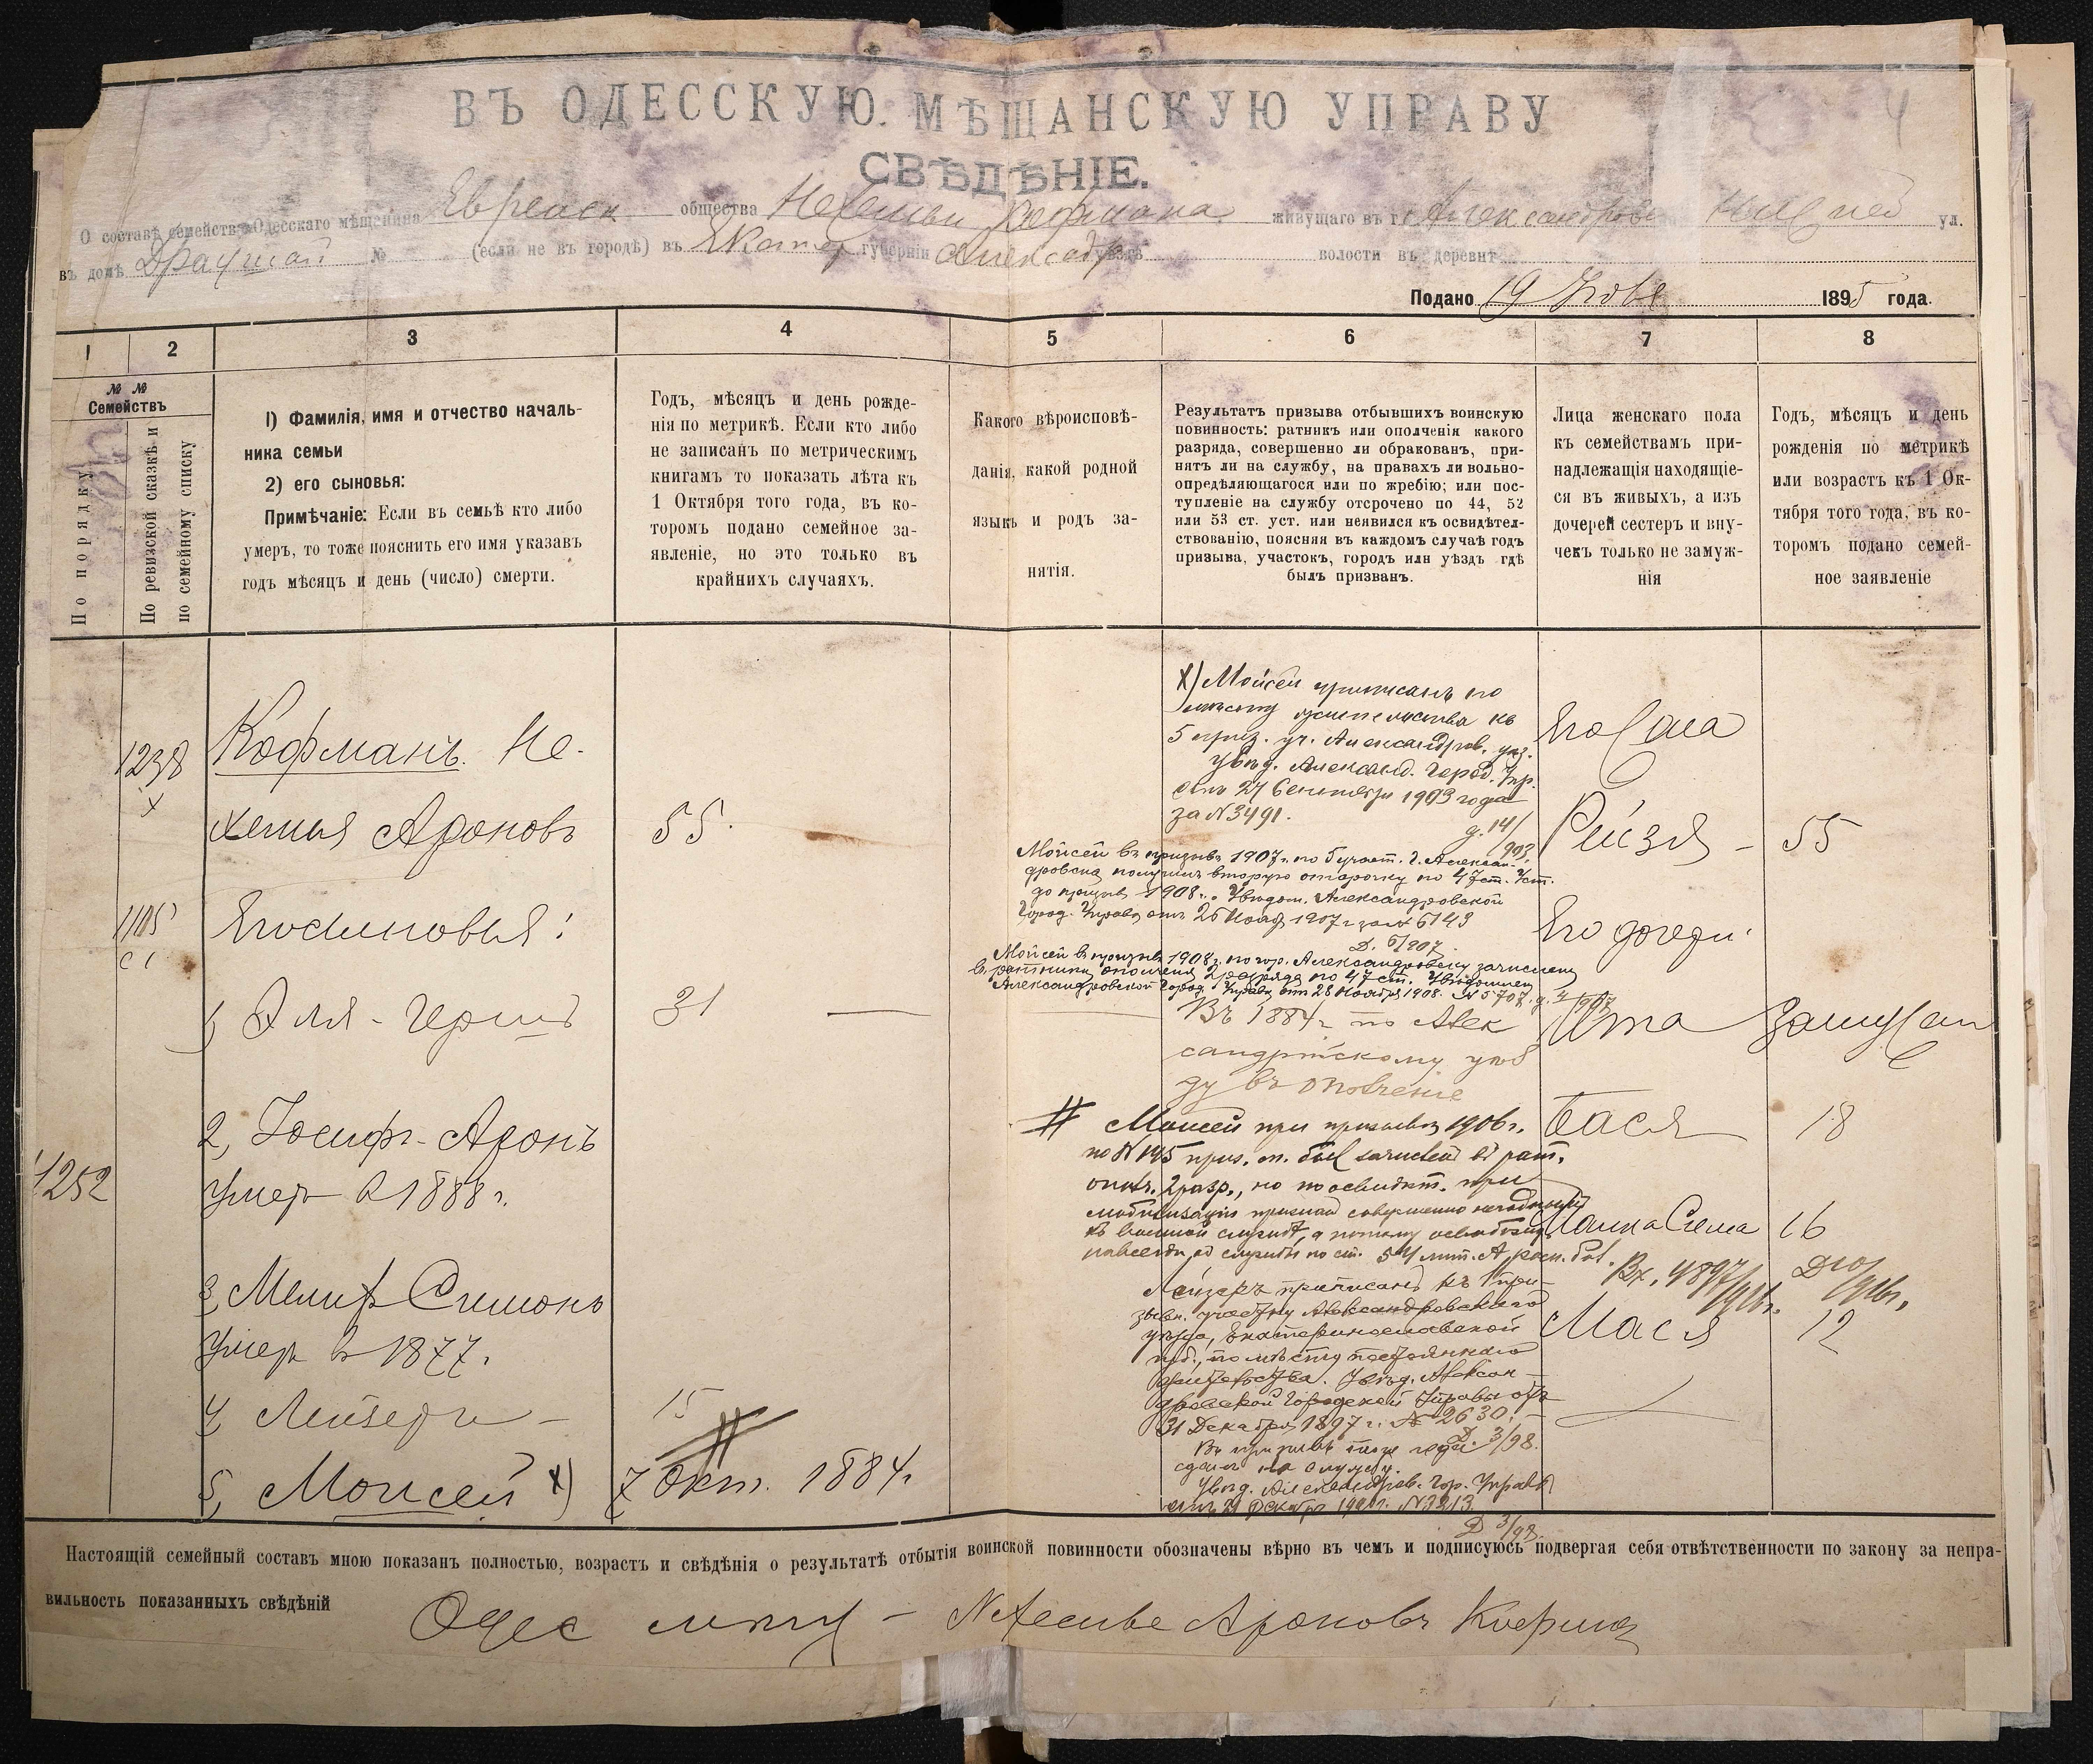 4
ВЪ ОДЕССКУЮ МѢЩАНСКУЮ УПРАВУ
СВѢДѢНІЕ.
О составѣ семейства Одесскаго мѣщанина Еврейск общества Нехемьи Кофмана живущаго въ г. Александровс ул.
въ домѣ № (если не въ городѣ) въ Екатер губерніи Александр уѣздѣ волости въ деревнѣ
Подано 19 Нояб 1895 года.
1 2 3 4 5 6 7 8
№ № Семействъ
По порядку
По ревизской сказкѣ и
по семейному списку
1) Фамилія, имя и отчество началь-
ника семьи
2) его сыновья:
Примѣчаніе: Если въ семьѣ кто либо
умеръ, то тоже пояснить его имя указавъ
годъ мѣсяцъ и день (число) смерти.
Годъ, мѣсяцъ и день рожде-
нія по метрикѣ. Если кто либо
не записанъ по метрическимъ
книгамъ то показать лѣта къ
1 Октября того года, въ ко-
торомъ подано семейное за-
явленіе, но это только въ
крайнихъ случаяхъ.
Какого вѣроисповѣ-
данія, какой родной
языкъ и родъ за-
нятія.
Результатъ призыва отбывшихъ воинскую
повинность: ратникъ или ополченія какого
разряда, совершенно ли обракованъ, при-
нятъ ли на службу, на правахъ ли вольно-
опредѣляющагося или по жребію; или пос-
тупленіе на службу отсрочено по 44, 52
или 53 ст. уст. или неявился къ освидѣтел-
ствованію, поясняя въ каждомъ случаѣ годъ
призыва, участокъ, городъ или уѣздъ гдѣ
былъ призванъ.
Лица женскаго пола
къ семействамъ при-
надлежащія находящіе-
ся въ живыхъ, а изъ
дочерей сестеръ и вну-
чекъ только не замуж-
нія
Годъ, мѣсяцъ и день
рожденія по метрикѣ
или возрастъ къ 1 Ок-
тября того года, въ ко-
торомъ подано семей-
ное заявленіе
1238
х
1105
1252
Кофманъ. Не-
хемья Ароновъ 55.
Его сыновья:
1, Эля-Герш 31 —
2, Іосифъ-Аронъ
умеръ в 1888 г.
3, Симонъ
умеръ в 1877 г.
4, Лейзеръ — 15
5, Моисей х) 7 Окт. 1884 г
х) Мойсей приписанъ по
мѣсту жительства къ
5 приз. уч. Александров. уѣз.
Увѣд. Александ. Город. Упр.
отъ 27 Сентября 1903 года
за № 3491.
д. 14/903
Мойсей въ призывъ 1907 г. по 5 участ. г. Алексан-
дровска получилъ вторую отсрочку по 47 ст. Уст.
до призыва 1908 г. Увѣдом. Александровской
Город. Управы отъ 26 Нояб 1907 г за № 6143
Д. 6/907
Мойсей въ призывъ 1908 г. по гор. Александровску зачисленъ
въ ратники ополченія 2 разряда по 47 ст. Увѣдомлен
Александровской Город. Управы отъ 28 Ноября 1908. № 5707.
Въ 1884 г по Алек
сандрійскому уѣз
ду въ ополченіе
# Моисей при призывѣ 1906 г.
по № 145 приз. сп. был зачислен в рат.
ополч. 2 разр., но по освидѣт. при
мобилизаціи признан совершенно негодным
къ военной службѣ, а потому освобожд
навсегда от службы по ст.
Вх. 4897/916 г. Д 10/916 г.
Лейзеръ приписанъ къ 1 при-
зывн. участку Александровскаго
уѣзда, Екатеринославской
губ., по мѣсту постояннаго
жительства. Увѣд. Алексан-
дровской Городской Управы отъ
31 Декабря 1897 г. № 2630.
Д. 3/98.
Въ призывъ
сданъ на службу.
Увѣд. Александров. Гор. Управы
отъ 21 Декабр № 3313
Д 3/98.
Его жена
Рейзя — 55
Его дочери:
Ита Замужем
Бася 18
Сима 16
Мася 12
Настоящій семейный составъ мною показанъ полностью, возрастъ и свѣдѣнія о результатѣ отбытія воинской повинности обозначены вѣрно въ чемъ и подписуюсь подвергая себя отвѣтственности по закону за непра-
вильность показанныхъ свѣдѣній
Одес мѣщ — Нехемье Ароновъ Кофман